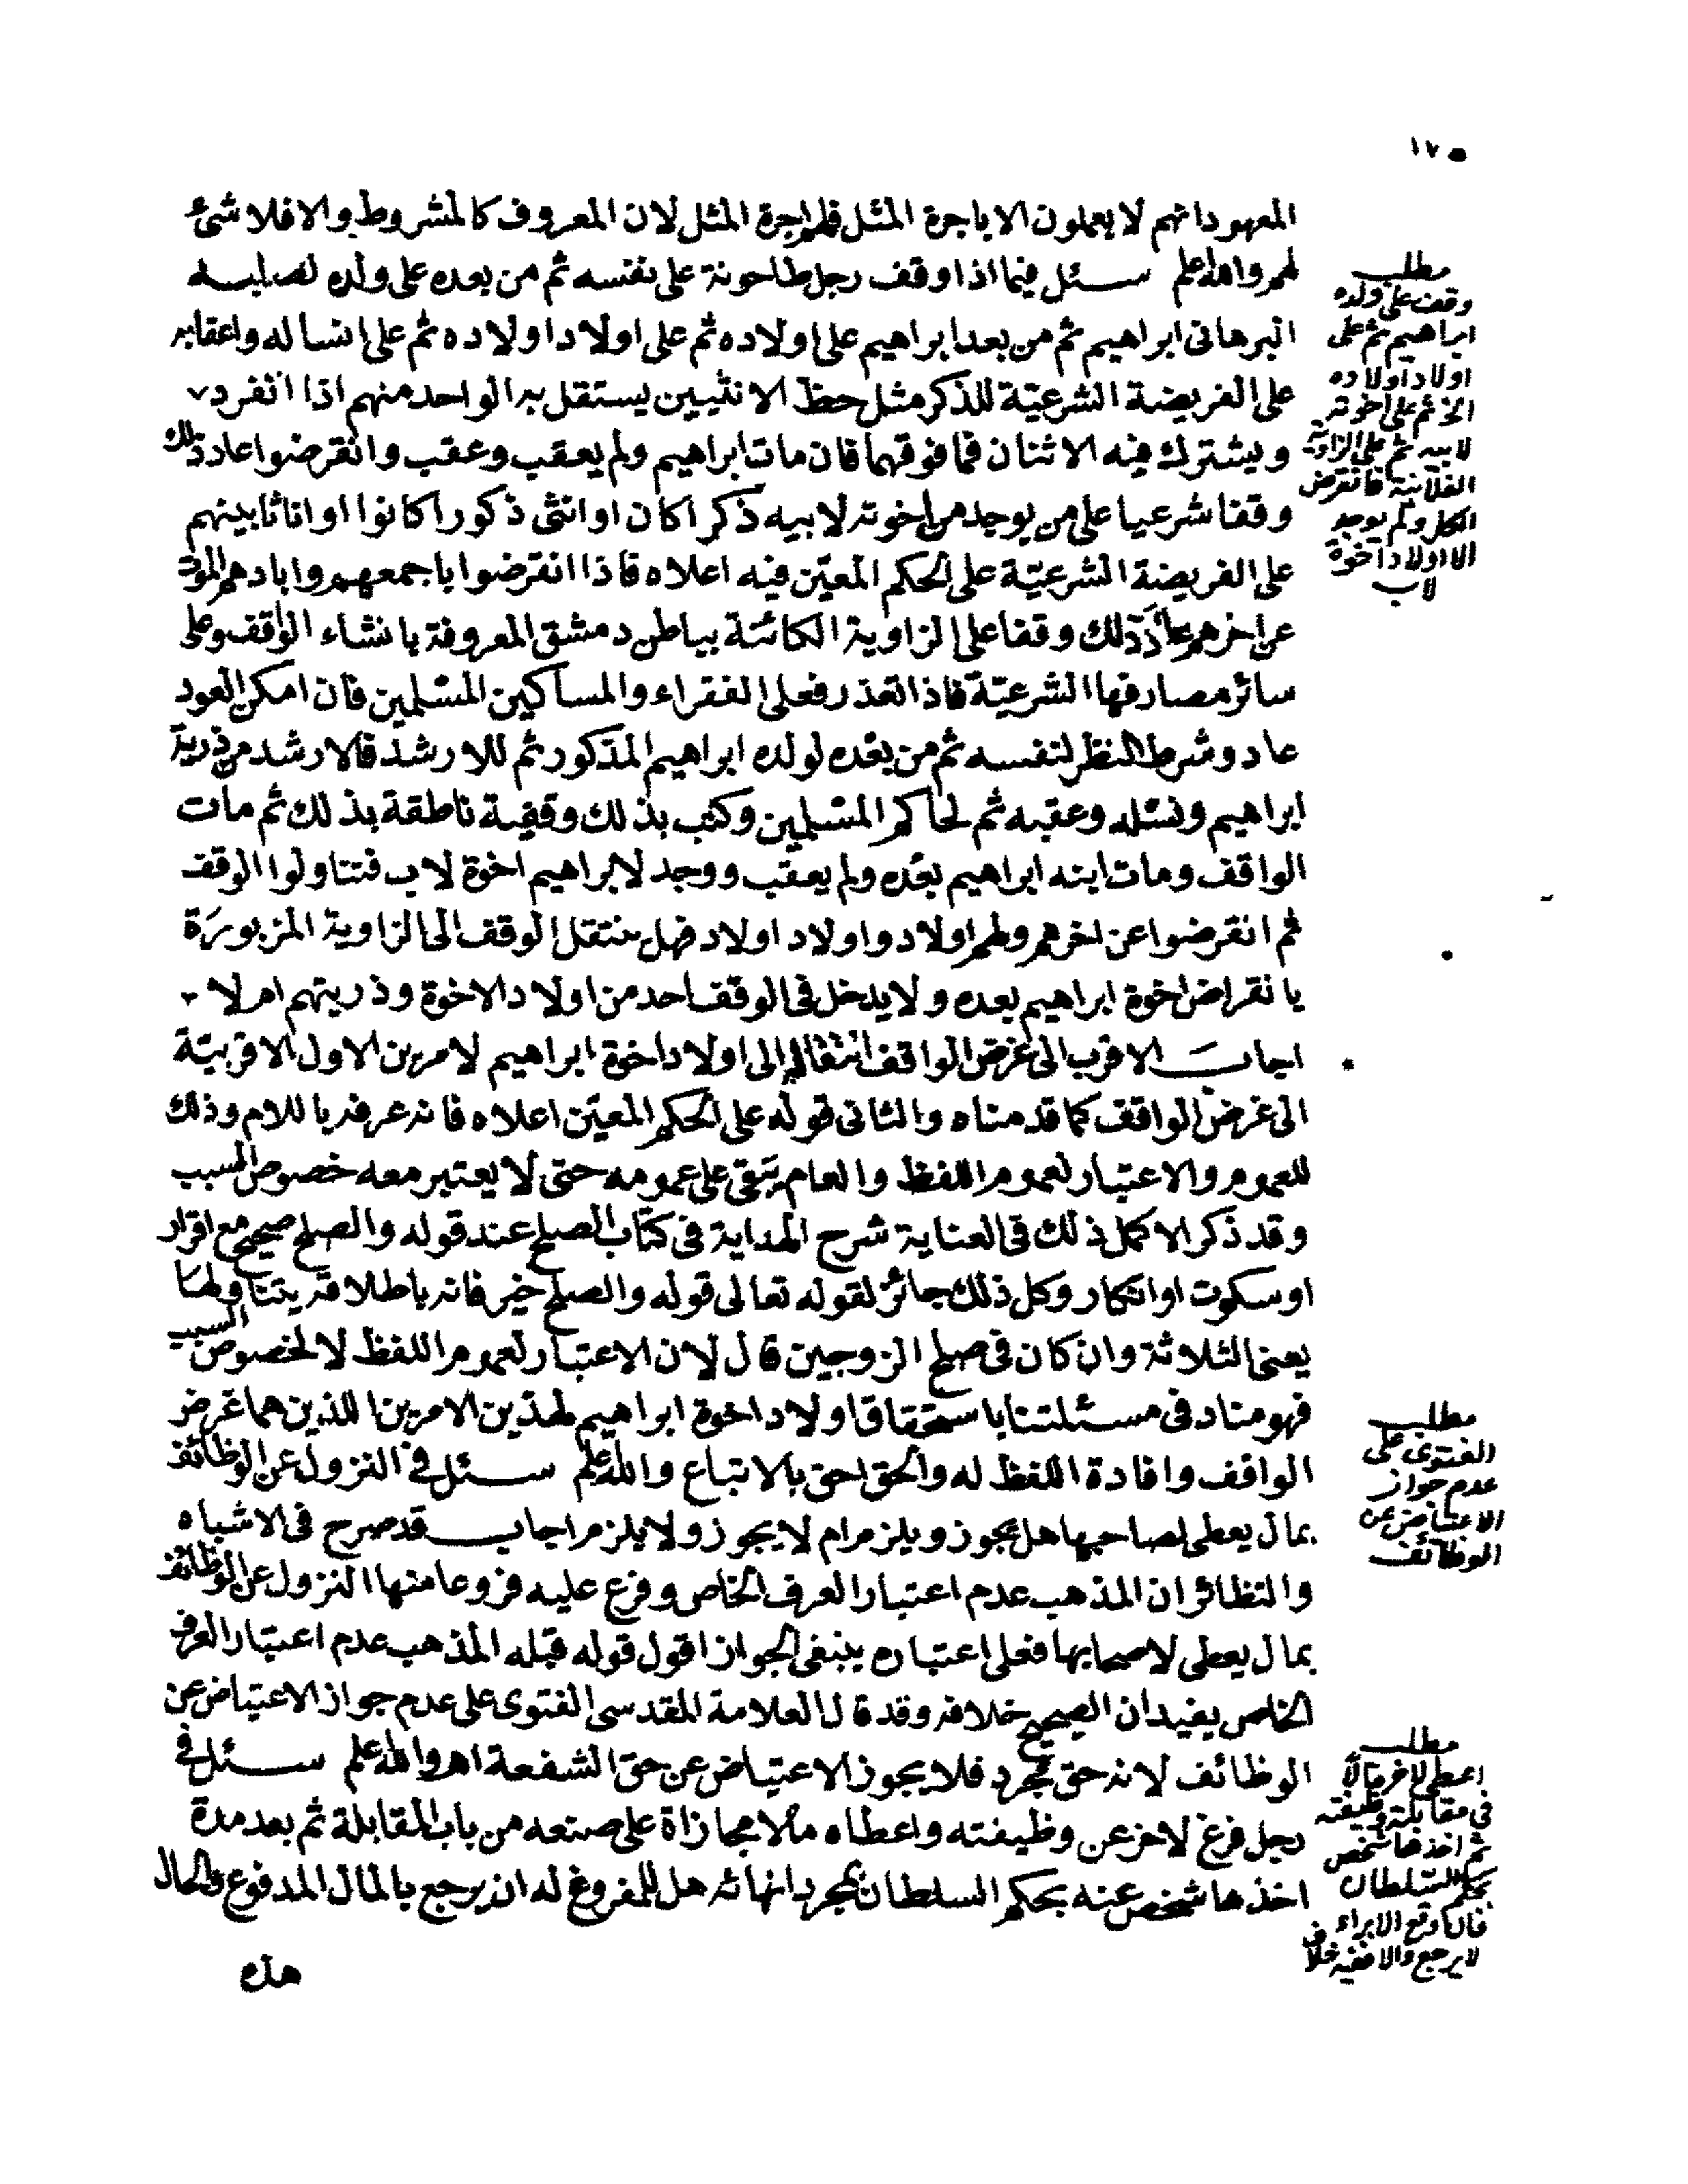 ١٧٥
المعهود انهم لا يعملون الا باجرة المثل فلهم اجرة المثل لان المعروف كالمشروط والا فلا شئ
لهم والله اعلم سئل فيما اذا وقف رجل طاحونة على نفسه ثم من بعده على ولده لصلبه
البرهانى ابراهيم ثم من بعد ابراهيم على اولاده ثم على اولاد اولاده ثم على انساله واعقابه
على الفريضة الشرعيّة للذكر مثل حظ الانثيين يستقل به الواحد منهم اذا انفرد
ويشترك فيه الاثنان فما فوقهما فان مات ابراهيم ولم يعقب وعقب وانقرضوا عاد ذلك
وقفا شرعيا على من يوجد من اخوته لابيه ذكرا كان او انثى ذكورا كانوا او اناثا بينهم
على الفريضة الشرعيّة على الحكم المعيّن فيه اعلاه فاذا انقرضوا باجمعهم وابادهم الموت
عن اخرهم عاد ذلك وقفا على الزاوية الكائنة بباطن دمشق المعروفة بانشاء الواقف وعلى
سائر مصارفها الشرعيّة فاذا تعذر فعلى الفقراء والمساكين المسلمين فان امكن العود
عاد وشرط النظر لنفسه ثم من بعده لولده ابراهيم المذكور ثم للارشد فالارشد من ذرية
ابراهيم ونسله وعقبه ثم لحاكم المسلمين وكتب بذلك وقفية ناطقة بذلك ثم مات
الواقف ومات ابنه ابراهيم بعده ولم يعقب ووجد لابراهيم اخوة لاب فتناولوا الوقف
ثم انقرضوا عن اخرهم ولهم اولاد واولاد اولاد فهل ينتقل الوقف الى الزاوية المزبورة
بانقراض اخوة ابراهيم بعده ولا يدخل فى الوقف احد من اولاد الاخوة وذريتهم ام لا
اجاب الاقرب الى غرض الواقف انتقاله الى اولاد اخوة ابراهيم لامرين الاول الاقربيّة
الى غرض الواقف كما قدمناه والثانى قوله على الحكم المعيّن اعلاه فانه عرفه باللام وذلك
للعموم والاعتبار لعموم اللفظ والعام يبقى على عمومه حتى لا يعتبر معه خصوص السبب
وقد ذكر الاكمل ذلك فى العناية شرح الهداية فى كتاب الصلح عند قوله والصلح صحيح مع اقرار
او سكوت او انكار وكل ذلك جائز لقوله تعالى قوله والصلح خير فانه باطلاقه يتناولها
يعنى الثلاثة وان كان فى صلح الزوجين قال لان الاعتبار لعموم اللفظ لا لخصوص السبب
فهو مناد فى مسئلتنا باستحقاق اولاد اخوة ابراهيم لهذين الامرين اللذين هما غرض
الواقف وافادة اللفظ له والحق احق بالاتباع والله اعلم سئل فى النزول عن الوظائف
بمال يعطى لصاحبها هل يجوز ويلزم ام لا يجوز ولا يلزم اجاب قد صرح فى الاشباه
والنظائر ان المذهب عدم اعتبار العرف الخاص وفرع عليه فروعا منها النزول عن الوظائف
بمال يعطى لاصحابها فعلى اعتباره ينبغى الجواز اقول قوله قبله المذهب عدم اعتبار العرف
الخاص يفيد ان الصحيح خلافه وقد قال العلامة المقدسى الفتوى على عدم جواز الاعتياض عن
الوظائف لانه حق مجرد فلا يجوز الاعتياض عن حق الشفعة اه والله اعلم سئل فى
رجل فرغ لاخر عن وظيفته واعطاه مالا مجازاة على صنعه من باب المقابلة ثم بعد مدة
اخذها شخص عنه بحكم السلطان بمجرد انهائه هل للمفروغ له ان يرجع بالمال المدفوع والحال
هذه
مطلب
وقف على ولده
ابراهيم ثم على
اولاد اولاده
الخ ثم على اخوته
لابيه ثم على الزاوية
الفلانية فانقرض
الكل ولم يوجد
الا اولاد اخوة
لاب
مطلب
الفتوى على
عدم جواز
الاعتياض عن
الوظائف
مطلب
اعطى لاخر مالا
فى مقابلة وظيفته
ثم اخذها شخص
بحكم السلطان
فان وقع الابراء
لا يرجع والا ففيه خلاف